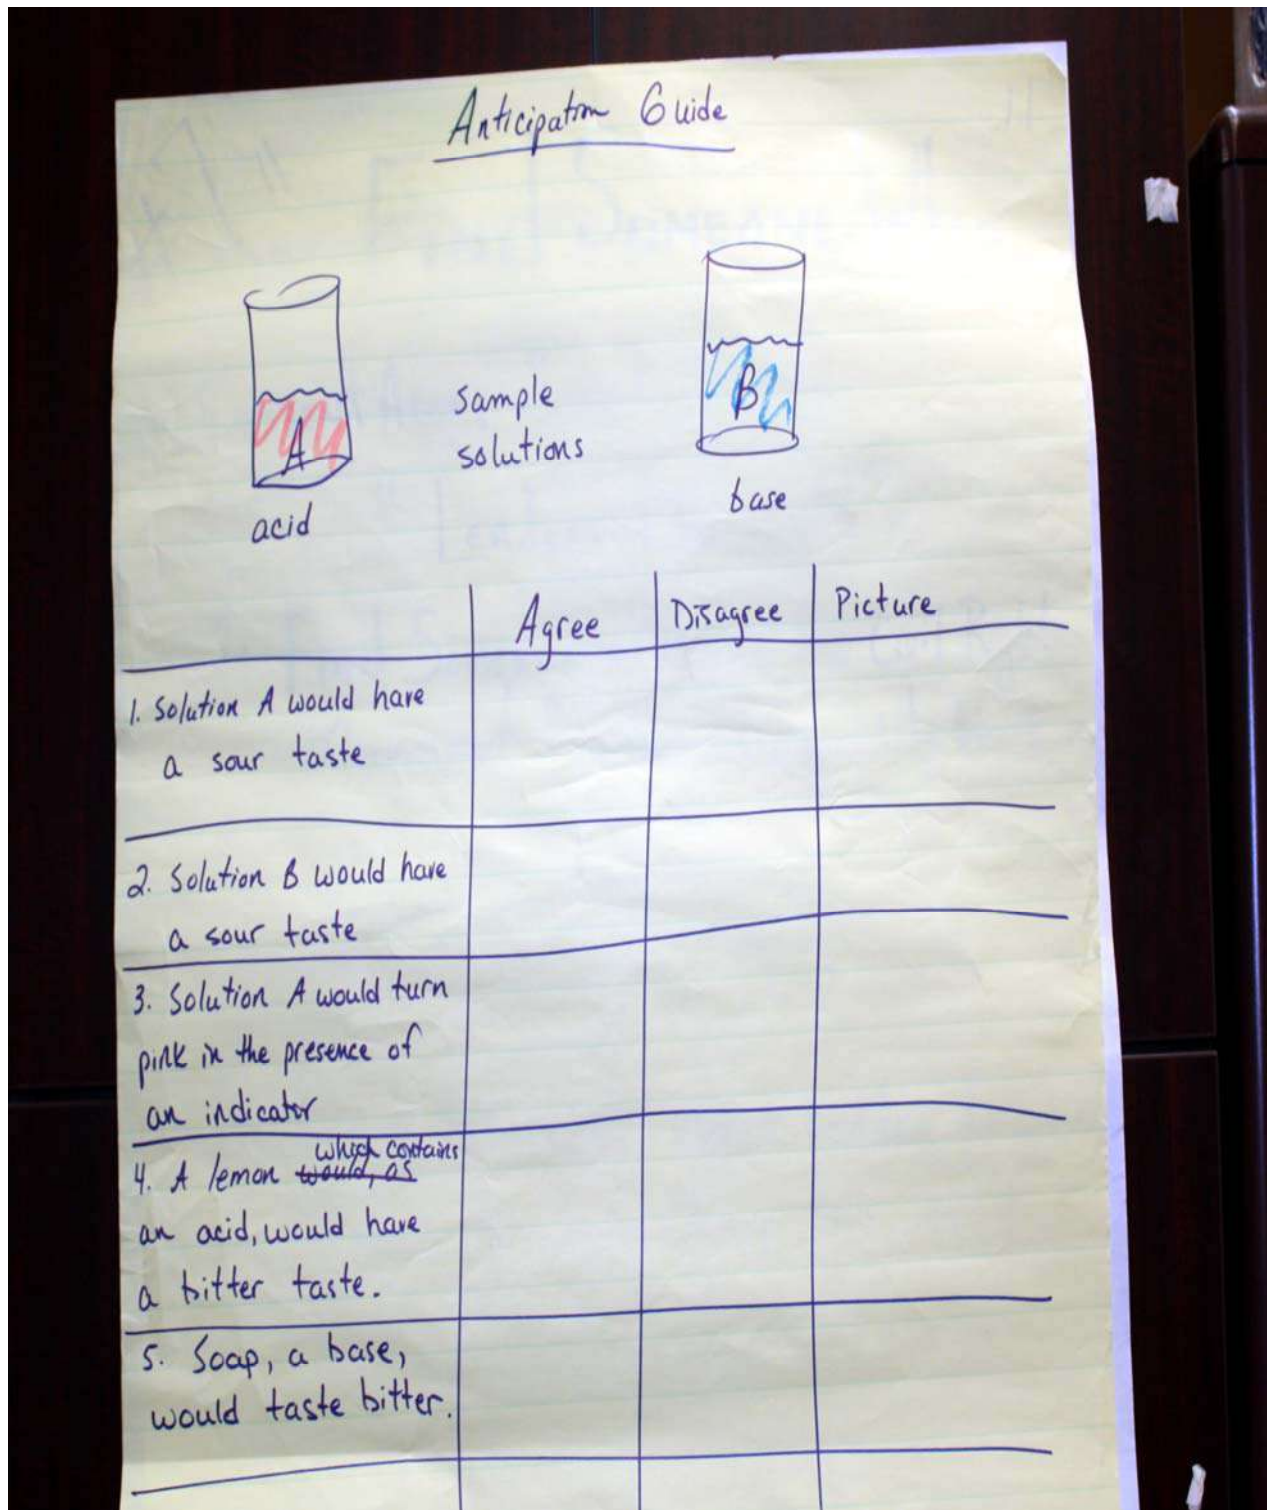 Anticipation Guide
A
acid
sample
solutions
B
base
Agree
Disagree
Picture
1. Solution A would have
a sour taste
2. Solution B would have
a sour taste
3. Solution A would turn
pink in the presence of
an indicator
which contains
4. A lemon would, as
an acid, would have
a bitter taste.
5. Soap, a base,
would taste bitter.